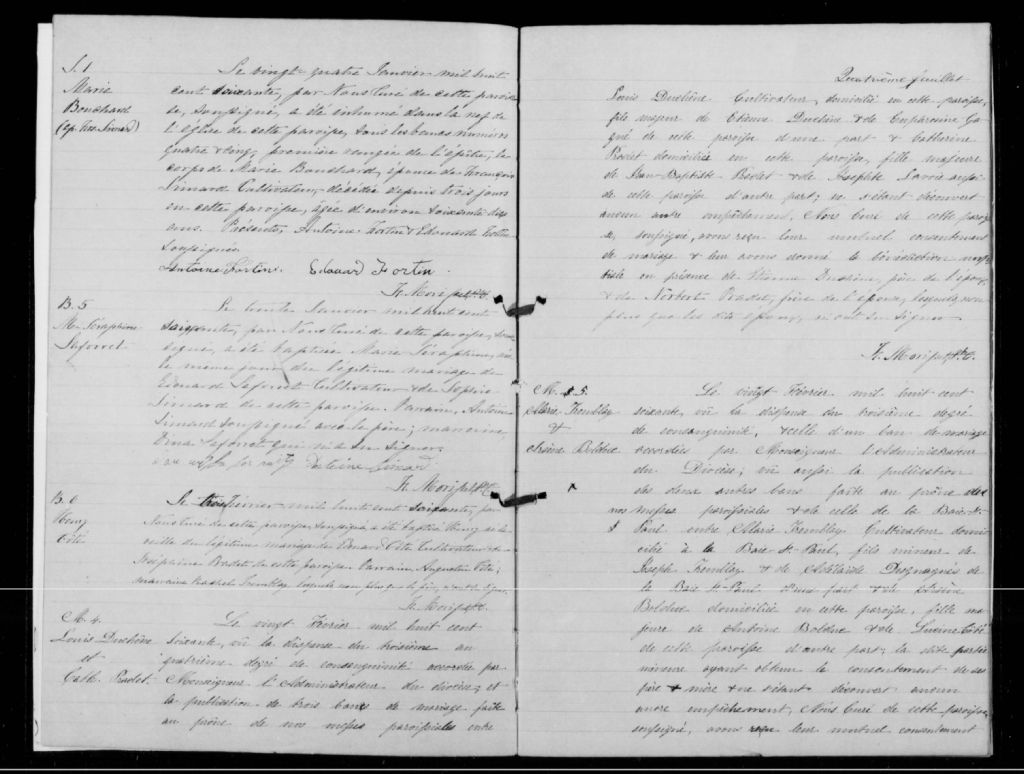 S. 1
Marie
Bouchard
(ép. Frs. Simard)
Le vingt quatre Janvier mil huit
cent soixante, par Nous Curé de cette parois
se, soussigné, a été inhumé dans la nef de
l'église de cette paroisse, sous les bancs numéros
quatre & cinq, première rangée de l'épitre, le
corps de Marie Bouchard, épouse de François
Simard Cultivateur, décédée depuis trois jours
en cette paroisse, âgée d'environ soixante dix
ans. Présents, Antoine Fortin & Edouard Fortin
soussignés
Antoine Fortin. Edouard Fortin.
Ptre.
B. 5
M. Séraphine
Laforest
Le trente Janvier mil huit cent
soixante, par Nous Curé de cette paroisse, sous
signé, a été baptisée Marie Séraphine, née
le même jour du légitime mariage de
Edouard Laforest Cultivateur & de Sophie
Simard de cette paroisse. Parrain, Antoine
Simard soussigné avec le père; marraine,
Laforest qui n'a su signer.
Simard
Ptre.
B. 6
Henry
Côté
Le trois Février mil huit cent soixante, par
Nous Curé de cette paroisse soussigné a été baptisé Henry né la
veille du légitime mariage de Edouard Côté Cultivateur & de
Bradet de cette paroisse. Parrain Augustin Côté;
marraine Rachel Tremblay
Ptre.
M. 4.
Louis Duchêne
et
Cath. Pradet.
Le vingt Février mil huit cent
soixante, vû la dispense du troisième au
quatrième degré de consanguinité accordée par
Monseigneur l'Administrateur du diocèse, et
la publication de trois bans de mariage faite
au prône de nos messes paroissiales entre
Quatrième feuillet
Louis Duchêne Cultivateur, domicilié en cette paroisse,
fils majeur de Etienne Duchêne & de Euphrosine Ga
gné de cette paroisse d'une part & Catherine
Pradet domiciliée en cette paroisse, fille majeure
de Jean-Baptiste Pradet & de Josephte Savoie aussi
de cette paroisse d'autre part; ne s'étant découvert
aucun autre empêchement, Nous Curé de cette parois
se, soussigné, avons reçu leur mutuel consentement
de mariage & leur avons donné la bénédiction nup
tiale en présence de Etienne Duchêne, père de l'époux,
& de Norbert Pradet, frère de l'épouse, lesquels non
plus que les dits époux, n'ont su signer.
Ptre.
M. 5.
Marie Tremblay
&
Arsène Bolduc
Le vingt Février mil huit cent
soixante, vû la dispense du troisième degré
de consanguinité, & celle d'un ban de mariage
accordées par Monseigneur l'Administrateur
du Diocèse; vû aussi la publication
des deux autres bans faite au prône de
nos messes paroissiales & de celle de la Baie St.
Paul entre Marie Tremblay Cultivateur domi
cilié à la Baie St. Paul, fils mineur de
Joseph Tremblay & de Adélaïde Desgagnés de
la Baie St. Paul d'une part & de Arsène
Bolduc domiciliée en cette paroisse, fille ma
jeure de Antoine Bolduc & de Côté
de cette paroisse d'autre part; la dite partie
mineure ayant obtenu le consentement de ses
père & mère & ne s'étant découvert aucun
autre empêchement, Nous Curé de cette paroisse,
soussigné, avons reçu leur mutuel consentement